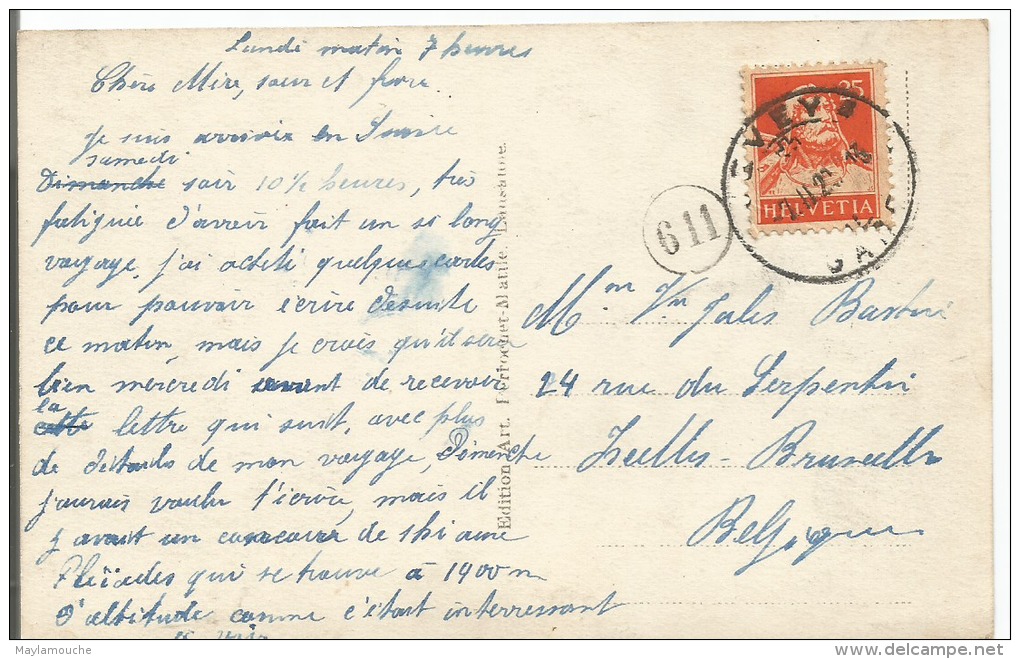 Lundi matin 7 heures
Chère Mère, sœur et frère.
je suis arrivée en Suisse
samedi
Dimanche soir 10 1/2 heures, très
fatiguée d'avoir fait un si long
voyage, j'ai acheté quelques cartes
pour pouvoir écrire desuite
ce matin, mais je crois qu'il sera
bien mercredi avant de recevoir
la
cette lettre qui suit, avec plus
de détails de mon voyage, Dimanche
j'aurais voulu t'écrire, mais il
y avait un concour de shi aux
Pléïades qui se trouve à 1400 m
d'altitude comme c'était interressant
à voir
Edition Art. Perrochet-Matile, Lausanne.
25
HELVETIA
VEVEY 2
GARE
611
Mme Vve Jules
24 rue du Serpentin
Ixelles - Bruxelles
Belgique
Maylamouche